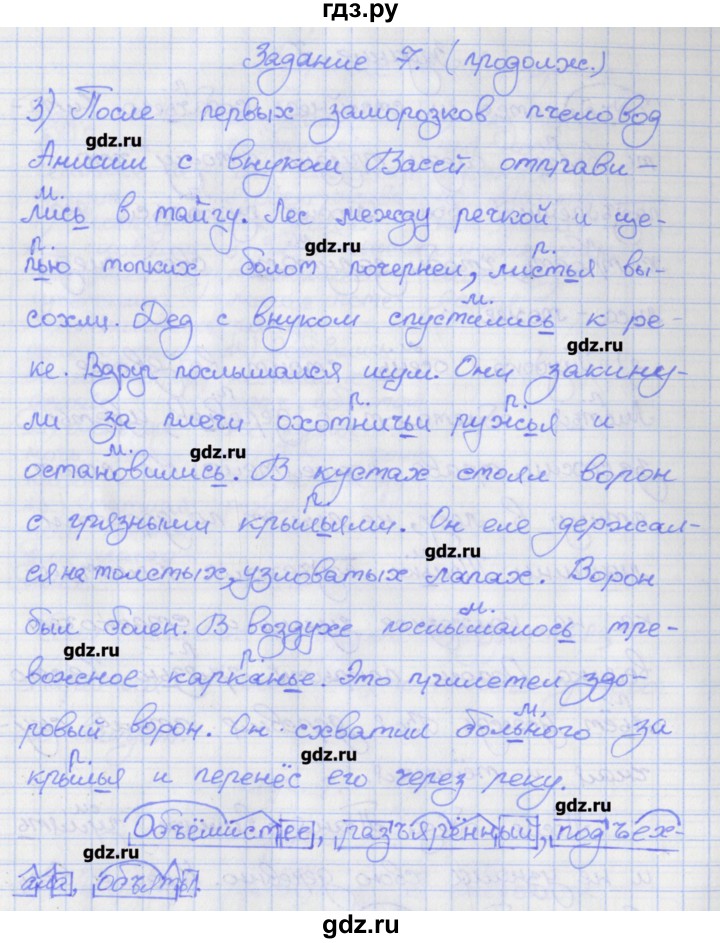 гдз.ру
Задание 7. (продолж.)
3) После первых заморозков пчеловод
gdz.ru
Анисим с внуком Васей отправи-
м.
лись в тайгу. Лес между речкой и це-
п. gdz.ru п.
пью топких болот почернел, листья вы-
м.
сохли. Дед с внуком спустились к ре-
gdz.ru
ке. Вдруг послышался шум. Они закину-
п. п.
ли за плечи охотничьи ружья и
м. gdz.ru
остановились. В кустах стоял ворон
п.
с грязными крыльями. Он еле держал-
gdz.ru
ся на толстых, узловатых лапах. Ворон
м.
был болен. В воздухе послышалось тре-
gdz.ru п.
вожное карканье. Это прилетел здо-
м.
ровый ворон. Он схватил больного за
п. gdz.ru
крылья и перенёс его через реку.
gdz.ru
Объёмистее, разъярённый, подъех-
gdz.ru
ала, объяты.
gdz.ru